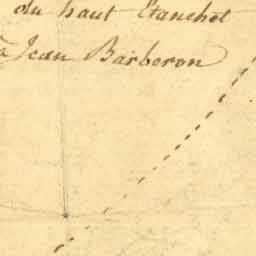 du haut Etanchot
à Jean Barberon